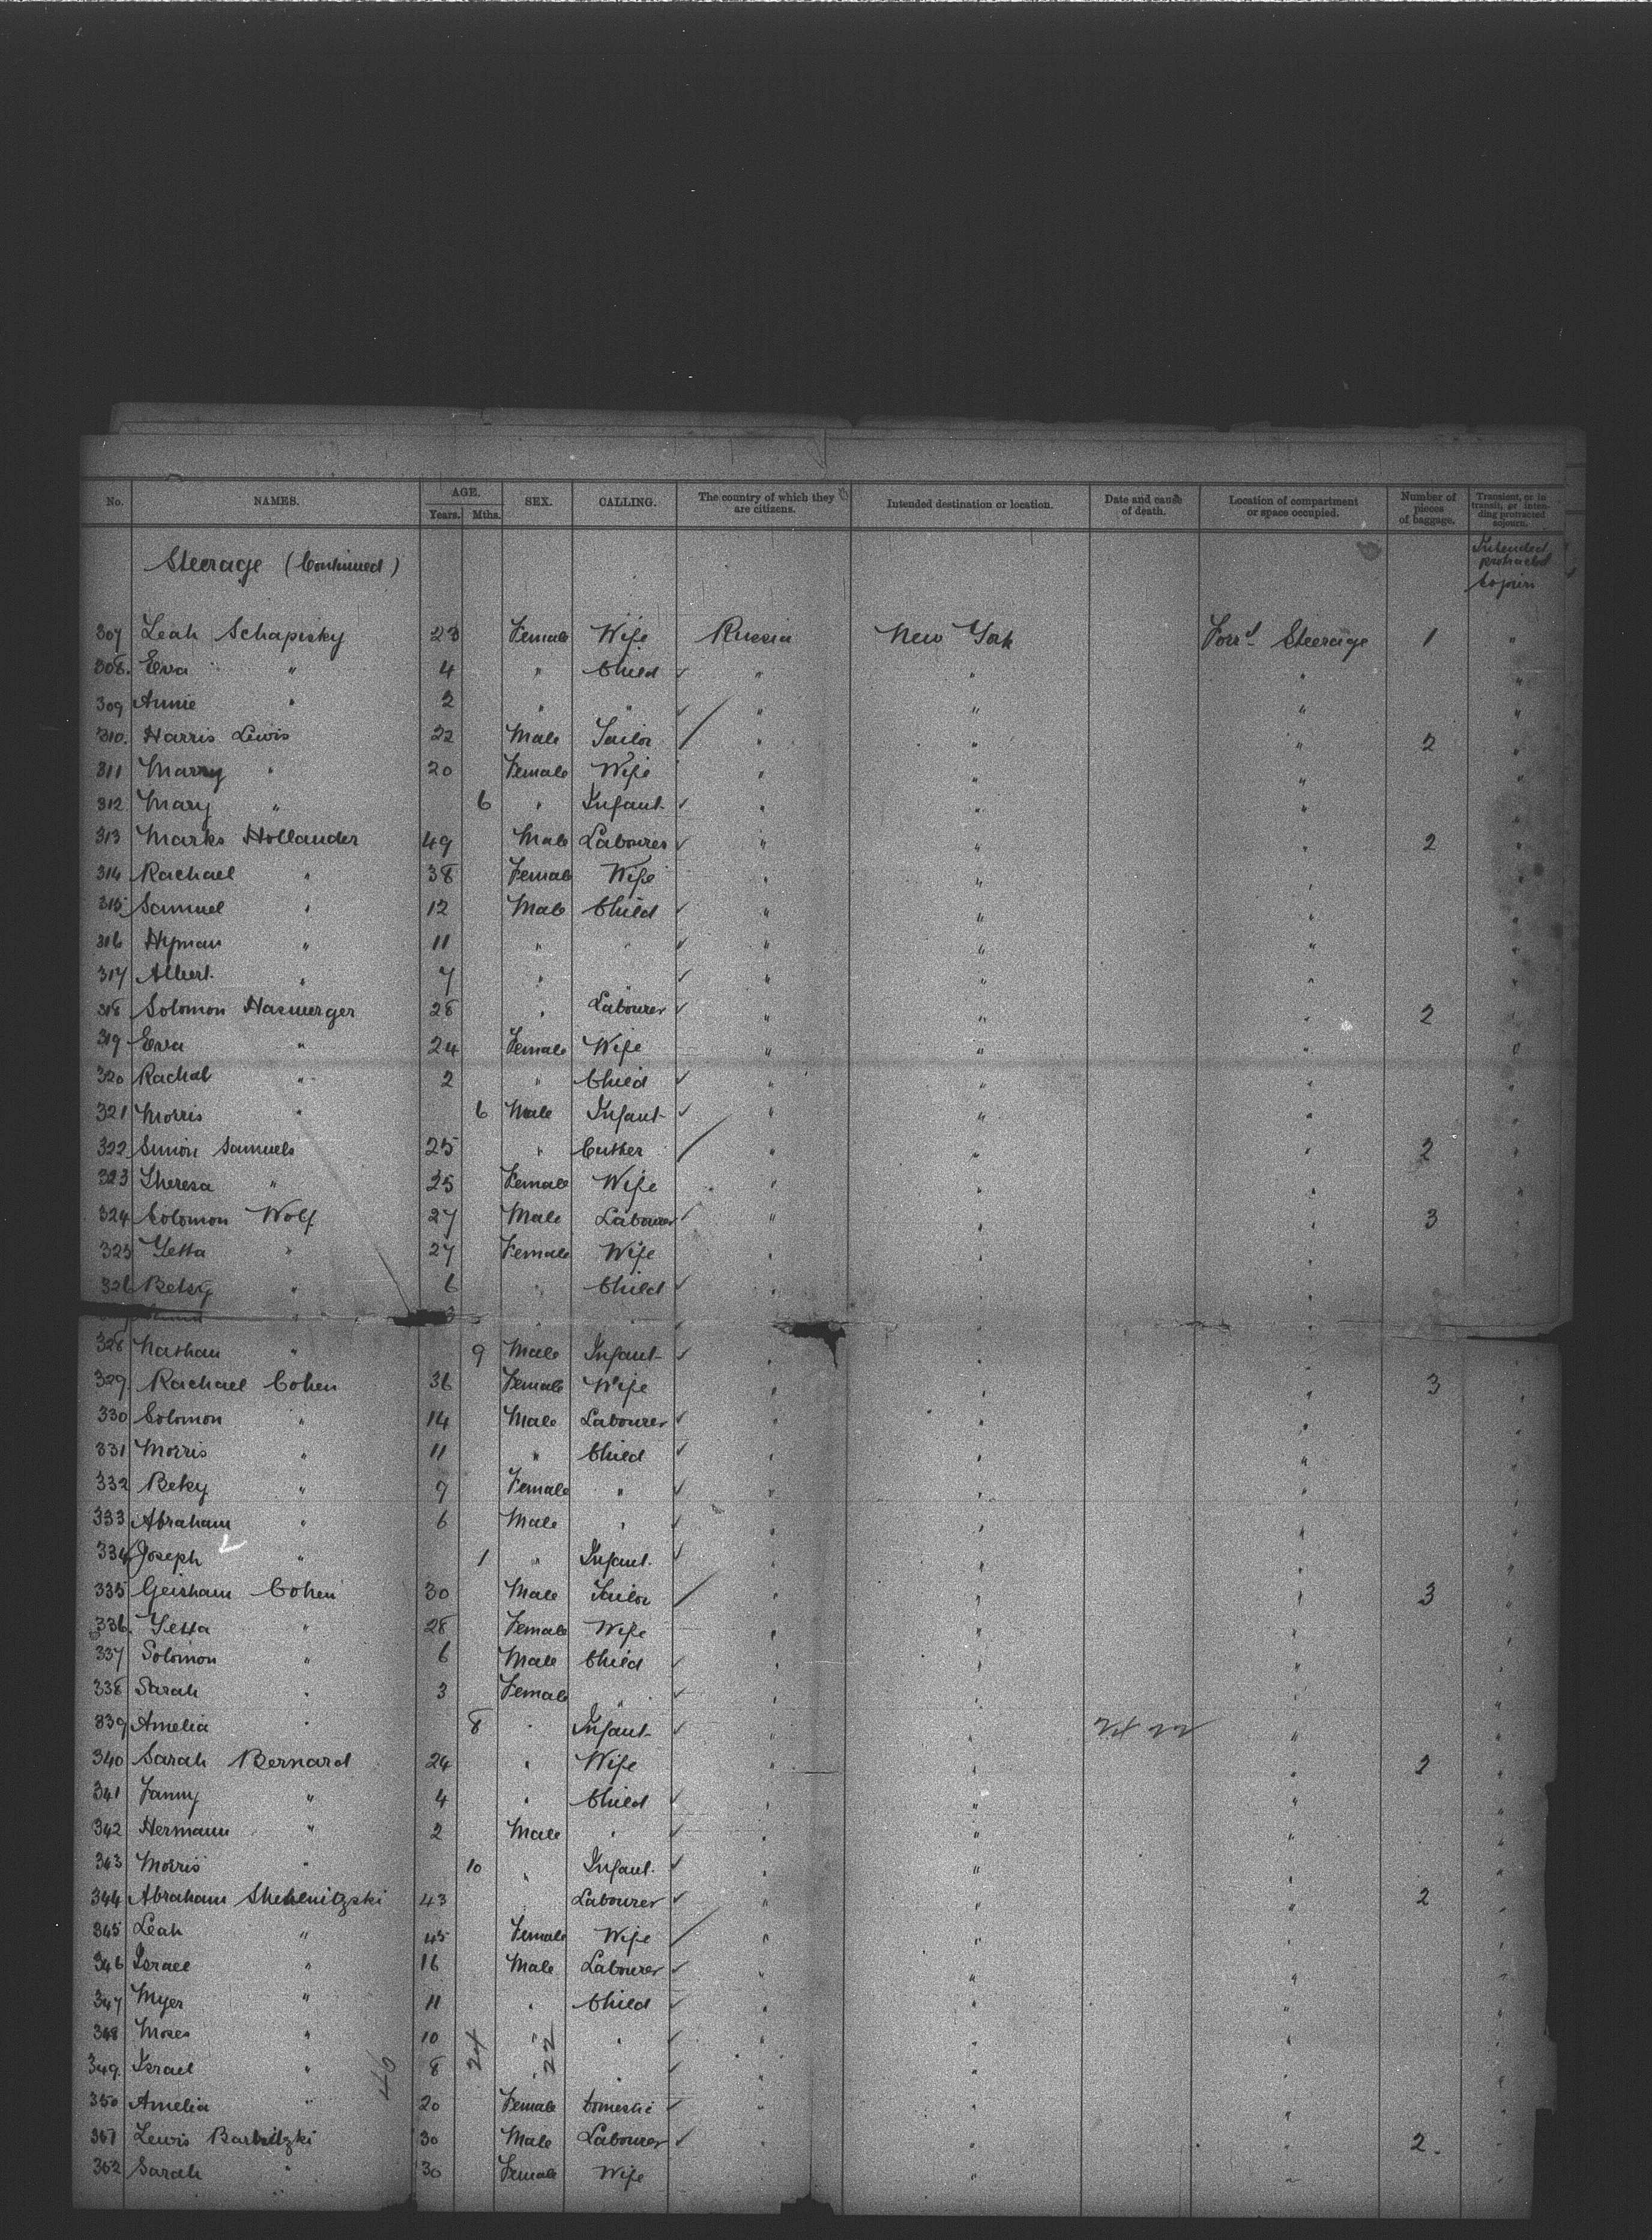 No. NAMES. AGE. Years. Mths. SEX. CALLING. The country of which they are citizens. Intended destination or location. Date and cause of death. Location of compartment or space occupied. Number of pieces of baggage. Transient, or in transit, or intending protracted sojourn.
Steerage (Continued) Intended protracted sojourn
307 Leah Schapisky 23 Female Wife Russia New York Forrd Steerage 1 "
308. Eva " 4 " Child ✓ " " " "
309 Annie " 2 " " ✓ " " " "
310. Harris Lewis 22 Male Tailor / " " " 2 "
311 Marry " 20 Female Wife " " " "
312 Mary " 6 " Infant ✓ " " " "
313 Marks Hollander 49 Male Labourer ✓ " " " 2 "
314 Rachael " 38 Female Wife " " " "
315 Samuel " 12 Male Child ✓ " " " "
316 Hyman " 11 " " ✓ " " " "
317 Albert " 7 " " ✓ " " " "
318 Solomon Hasmerger 28 " Labourer ✓ " " " 2 "
319 Eva " 24 Female Wife " " " "
320 Rachal " 2 " Child ✓ " " " "
321 Morris " 6 Male Infant ✓ " " " "
322 Simon Samuels 25 " Cutter / " " " 2 "
323 Theresa " 25 Female Wife " " " "
324 Solomon Wolf 27 Male Labourer ✓ " " " 3 "
325 Yetta " 27 Female Wife " " " "
326 Betsy " 6 " Child ✓ " " " "
" 3 " " ✓ " " "
328 Nathan " 9 Male Infant ✓ " " " "
329. Rachael Cohen 36 Female Wife " " " 3 "
330 Solomon " 14 Male Labourer ✓ " " " "
331 Morris " 11 " Child ✓ " " " "
332 Beky " 9 Female " ✓ " " " "
333 Abraham " 6 Male " ✓ " " " "
334 Joseph " 1 " Infant ✓ " " " "
335 Geisham Cohen 30 Male Tailor / " " " 3 "
336. Yetta " 28 Female Wife " " " "
337 Solomon " 6 Male Child ✓ " " " "
338 Sarah " 3 Female " ✓ " " " "
339 Amelia " 8 " Infant ✓ " " 24 22 " "
340 Sarah Bernard 24 " Wife " " " 2 "
341 Fanny " 4 " Child ✓ " " " "
342 Hermann " 2 Male " ✓ " " " "
343 Morris " 10 " Infant ✓ " " " "
344 Abraham Shehenitzski 43 Labourer ✓ " " " 2 "
345 Leah " 45 Female Wife / " " " "
346 Israel " 16 Male Labourer ✓ " " " "
347 Myer " 11 " Child ✓ " " " "
348 Moses " 10 24 " 22 " ✓ " " " "
349. Israel " 40 8 " " ✓ " " " "
350 Amelia " 20 Female Domestic ✓ " " " "
351 Lewis Barbitzki 30 Male Labourer ✓ " " " 2. "
352 Sarah " 30 Female Wife " " "